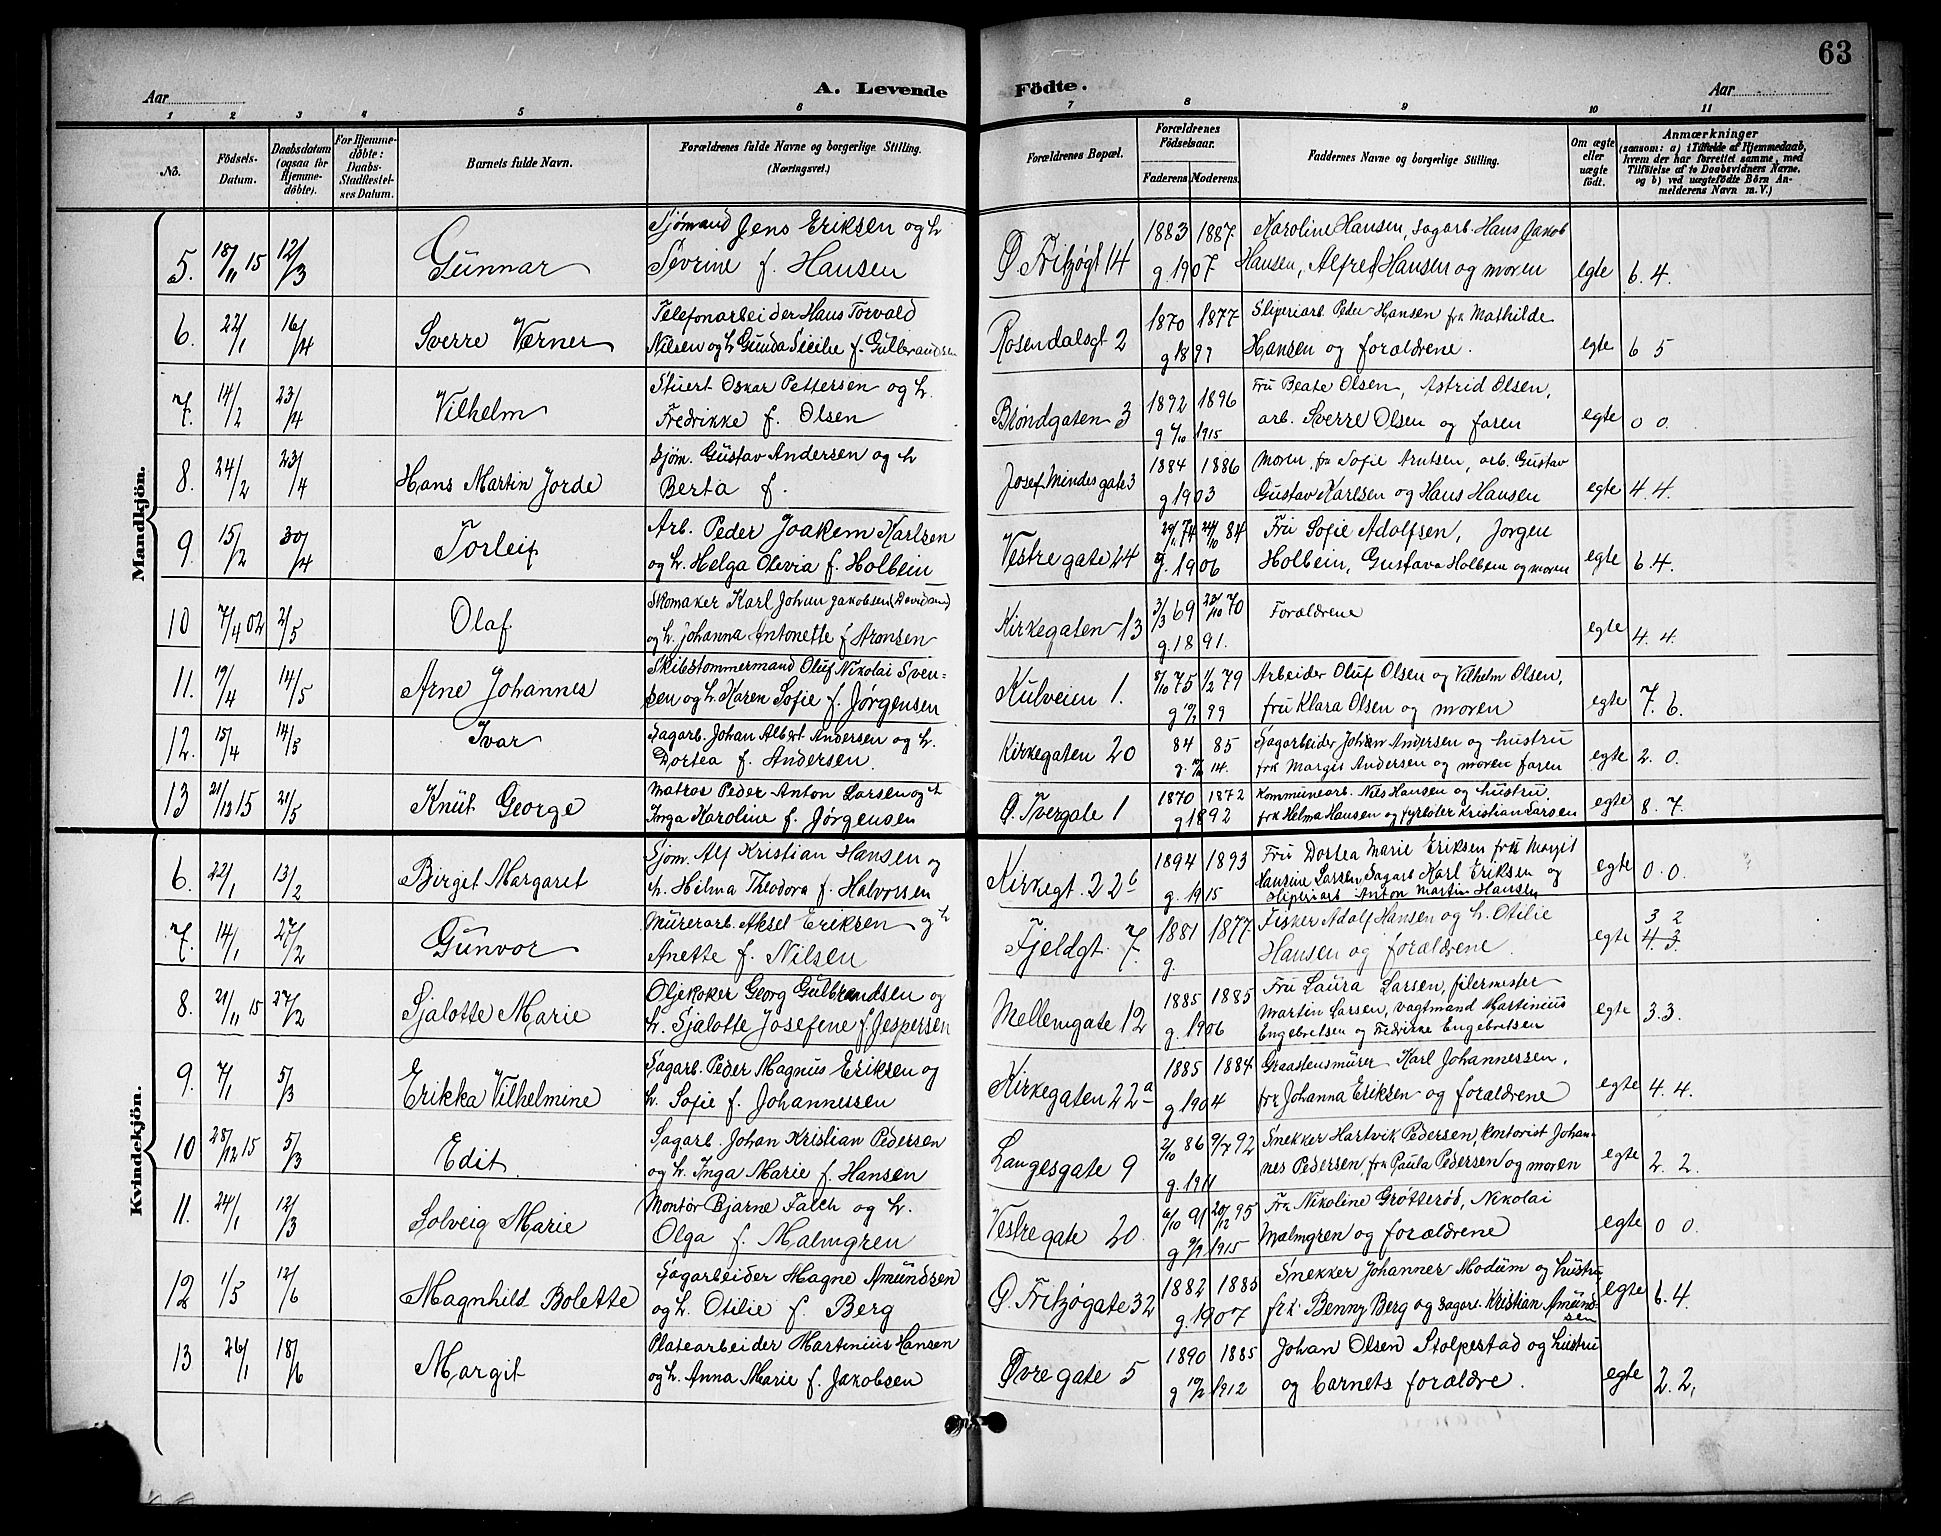 63
Aar
A. Levende
Födte.
Aar
1 2 3 4 5 6 7 8 9 10 11
No.
Födsels-
Datum.
Daabsdatum
(ogsaa för
Hjemme-
döbte).
For Hjemme-
döbte:
Daabs-
Stadfæstel-
ses Datum.
Barnets fulde Navn.
Forældrenes fulde Navne og borgerlige Stilling.
(Næringsvei.)
Forældrenes Bopæl.
Forældrenes
Födselsaar.
Faderens. Moderens.
Faddernes Navne og borgerlige Stilling.
Om ægte
eller
uægte
födt.
Anmærkninger
(saasom: a) i Tilfælde af Hjemmedaab,
hvem der har forrettet samme, med
Tilföielse af to Daabsvidners Navne.
og b) ved uægtefödte Börn An-
melderens Navn m. V.)
Mandkjön.
5. 18/11 15 12/3 Gunnar
Sjømand Jens Eriksen og h
Sevrine f. Hansen
Ø Fritzøgt 14
1883 1887
g. 1907
Karoline Hansen, sagarb. Hans Jakob
Hansen, Alfred Hansen og moren
egte 6. 4.
6. 22/1 16/4 Sverre Verner
Telefonarbeider Hans Torvald
Nilsen og h Gunda Secilie f. Gulbrandsen
Rosendalsgt 2
1870 1877
g 1897
Sliperiarb. Peder Hansen frk Mathilde
Hansen og forældrene.
egte 6 5
7. 14/2 23/4 Vilhelm
Stuert Oskar Pettersen og h.
Fredrikke f. Olsen
Brøndgaten 3
1892 1896
1915
Fru Beate Olsen, Astrid Olsen,
arb. Sverre Olsen og faren
egte 0 0.
8. 24/2 23/4 Hans Martin Jorde
Sjøm. Gustav Andersen og h
Berta f.
Josef Mindes gate 3
1884 1886
g 1903
Moren, fru Sofie Arntsen, arb. Gustav
Gustav Karlsen og Hans Hansen
egte 4. 4.
9. 15/2 30/4 Torleif
Arb. Peder Joakem Karlsen
og h. Helga Olevia f. Holbein
Vestre gate 24
29/11 74 24/10 84
g. 1906
Fru Sofie Adolfsen, Jørgen
Holbein, Gustava Holbein og moren
egte 6. 4.
10 7/4 02 2/5 Olaf
Skomaker Karl Johan Jakobsen (Davidsen)
og h. Johanna Antonette f Aronsen
Kirkegaten 13
3/3 69 23/10 70
g. 1891.
Forældrene
egte 4. 4.
11. 19/4 14/5 Arne Johannes
Skibstømmermand Oluf Nikolai Sven-
sen og h. Karen Sofie f. Jørgensen
Kulveien 1.
5/10 75 1/2 79
g 99
Arbeider Oluf Olsen og Vilhelm Olsen,
fru Klara Olsen og moren
egte 7. 6.
12. 15/4 14/5 Ivar
Sagarb. Johan Albert Andersen og h.
Dortea f. Andersen.
Kirkegaten 20
84 85
g. 14.
Sagarbeider Johan Andersen og hustru
frk Margit Andersen og moren faren
egte 2. 0.
13 21/12 15 21/5 Knut George
Matros Peder Anton Larsen og h
Inga Karoline f. Jørgensen
Ø. Tvergate 1
1870 1872
g 1892
Kommunearb. Nils Hansen og hustru,
frk Helma Hansen og fyrbøter Kristian Larsen
egte 8. 7.
Kvindekjön.
6. 22/1 13/2 Birgit Margaret
Sjøm. Alf Kristian Hansen og
h. Hilma Theodora f. Halvorsen
Kirkegt. 22b
1894 1893
g. 1915
Fru Dortea Marie Eriksen frk Margit
Hansine Larsen, Sagarb Karl Eriksen og
Sliperiarb. Anton Martin Hansen
egte 0. 0.
7. 14/1 27/2 Gunvor
Murerarb. Aksel Eriksen og h
Anette f. Nilsen
Fjeldgt. 7.
1881 1877
g.
Fisker Adolf Hansen og h. Otilie
Hansen og forældrene.
egte 3 2
4. 3.
8. 21/11 15 27/2 Sjalotte Marie
Oljekoker Georg Gulbrandsen og
h. Sjalotte Josefene f. Jespersen
Mellemgate 12
1885 1885
g. 1906
Fru Laura Larsen, filermester
Martin Larsen, vagtmand Martinius
Engebretsen og Fredrikke Engebretsen
egte 3. 3.
9. 7/1 5/3 Erikka Vilhelmine
Sagarb. Peder Magnus Eriksen og
h. Sofie f. Johannessen
Kirkegaten 22a
1885 1884
g 1904
Graastensmurer Karl Johannessen,
frk Johanna Eriksen og forældrene
egte 4. 4.
10 28/12 15 5/3 Edit.
Sagarb. Johan Kristian Pedersen
og h. Inga Marie f. Hansen
Langesgate 9
2/10 86 9/7 92
g. 1911
Snekker Hartvik Pedersen, kontorist Johan-
nes Pedersen, frk Paula Pedersen og moren
egte 2. 2.
11. 24/1 12/3 Solveig Marie
Montør Bjarne Falch og h.
Olga f. Malmgren
Vestre gate 20.
6/10 91 20/12 95
g 9/9 1915
Fru Nikoline Grøtterød, Nikolai
Malmgren og forældrene
egte 0 0.
12 1/5 12/6 Magnhild Bolette
Sagarbeider Magne Amundsen
og h. Otilie f. Berg
Ø. Fritzøgate 32
1882 1885
g. 1907
Snekker Johannes Modum og hustru,
frk. Benny Berg og sagarb. Kristian Amund-
sen
egte 6. 4.
13 26/1 18/6 Margit
Platearbeider Martinius Hansen
og h. Anna Marie f. Jakobsen
Øvre gate 5
1890 1885
g 19/2 1912
Johan Olsen Stolpestad og hustru
og barnets forældre.
egte 2. 2,